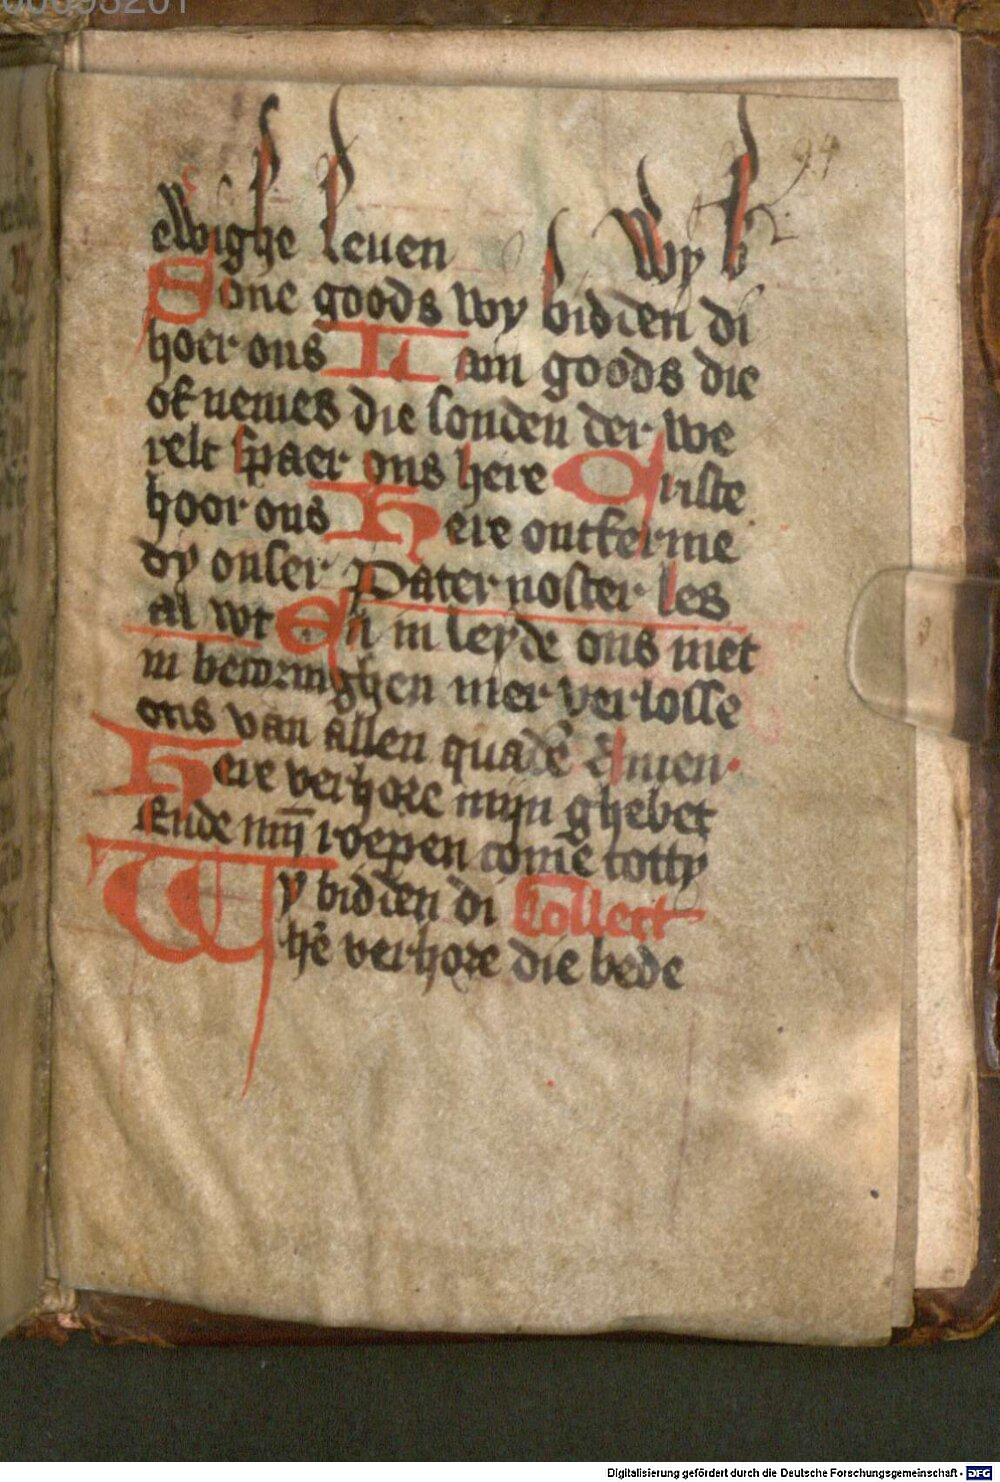 00095201
94
ewighe leuen Wy b
Sone goods wy bidden di
hoer ons Lam goods die
of nemes die sonden der we
relt spaer ons here Criste
hoor ons Here ontferme
dy onser Pater noster les
al wt En in leyde ons niet
in becoringhen mer verlosse
ons van allen quadē Amen
Here verhore mijn ghebet
Ende mij roepen comē totty
Wy bidden di Collect
hē verhore die bede
Digitalisierung gefördert durch die Deutsche Forschungsgemeinschaft - DFG